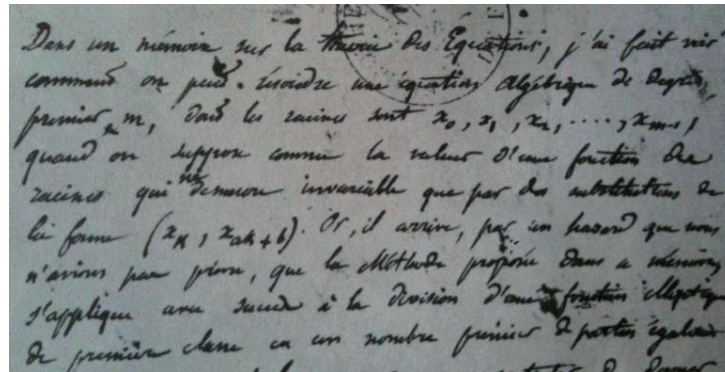 Dans un mémoire sur la théorie des Équations, j'ai fait voir
comment on peut résoudre une équation algébrique de degré
premier m, dont les racines sont x₀, x₁, x₂, ....., xₘ₋₁,
quand on suppose connue la valeur d'une fonction des
racines qui ne demeure invariable que par des substitutions de
la forme (xₖ, xₐₖ₊b). Or, il arrive, par un hazard que nous
n'avions pas prévu, que la Méthode proposée dans ce mémoire
s'applique avec succès à la division d'une fonction elliptique
de première classe en un nombre premier de parties égales
de